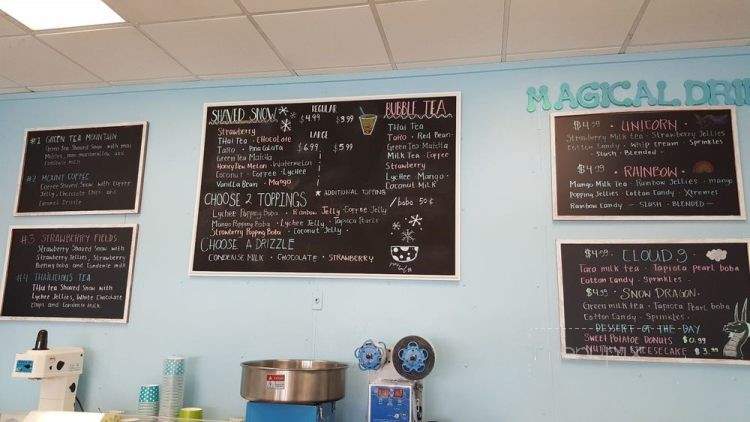 #1 GREEN TEA MOUNTAIN
Green Tea Shaved Snow with
#2 MOUNT COFFEE
Coffee Shaved Snow with Coffee
Jelly, Chocolate Chips and
Caramel Drizzle
#3 STRAWBERRY FIELDS
Strawberry Shaved Snow with
Strawberry Jellies, Strawberry
Popping Boba and Condense milk
#4 THAILICIOUS TEA
Thai tea Shaved Snow with
Lychee Jellies, White Chocolate
Chips and Condense Milk
SHAVED SNOW
REGULAR
$4.99 $3.99
LARGE
$6.99 $5.99
Strawberry
Thai Tea · Chocolate
Taro · Pina Colata
Green Tea Matcha
Honeydew Melon · Watermelon
Coconut · Coffee · Lychee
Vanilla Bean · Mango
BUBBLE TEA
Thai Tea
Taro · Red Bean
Green Tea Matcha
Milk Tea · Coffee
Strawberry
Lychee · Mango
Coconut Milk
ADDITIONAL TOPPING
/boba 50¢
CHOOSE 2 TOPPINGS
Lychee Popping Boba · Rainbow Jelly · Coffee Jelly
Mango Popping Boba · Lychee Jelly · Tapioca Pearls
Strawberry Popping Boba · Coconut Jelly
CHOOSE A DRIZZLE
CONDENSE MILK · CHOCOLATE · STRAWBERRY
MAGICAL DRI
$4.99 · UNICORN ·
Strawberry Milk tea · Strawberry Jellies
Cotton Candy · Whip cream · Sprinkles
- Slush · Blended -
$4.99 · RAINBOW ·
Mango Milk Tea · Rainbow Jellies · mango
Popping Jellies · Cotton Candy · Xtremes
Rainbow Candy — SLUSH · BLENDED —
$4.99 CLOUD 9
Taro milk tea · Tapioca pearl boba
Cotton Candy · Sprinkles
$4.99 · SNOW DRAGON
Green milk tea · Tapioca Pearl boba
Cotton Candy · Sprinkles ·
DESSERT OF THE DAY
SWEET POTATO DONUTS $0.99
CHEESECAKE $3.99